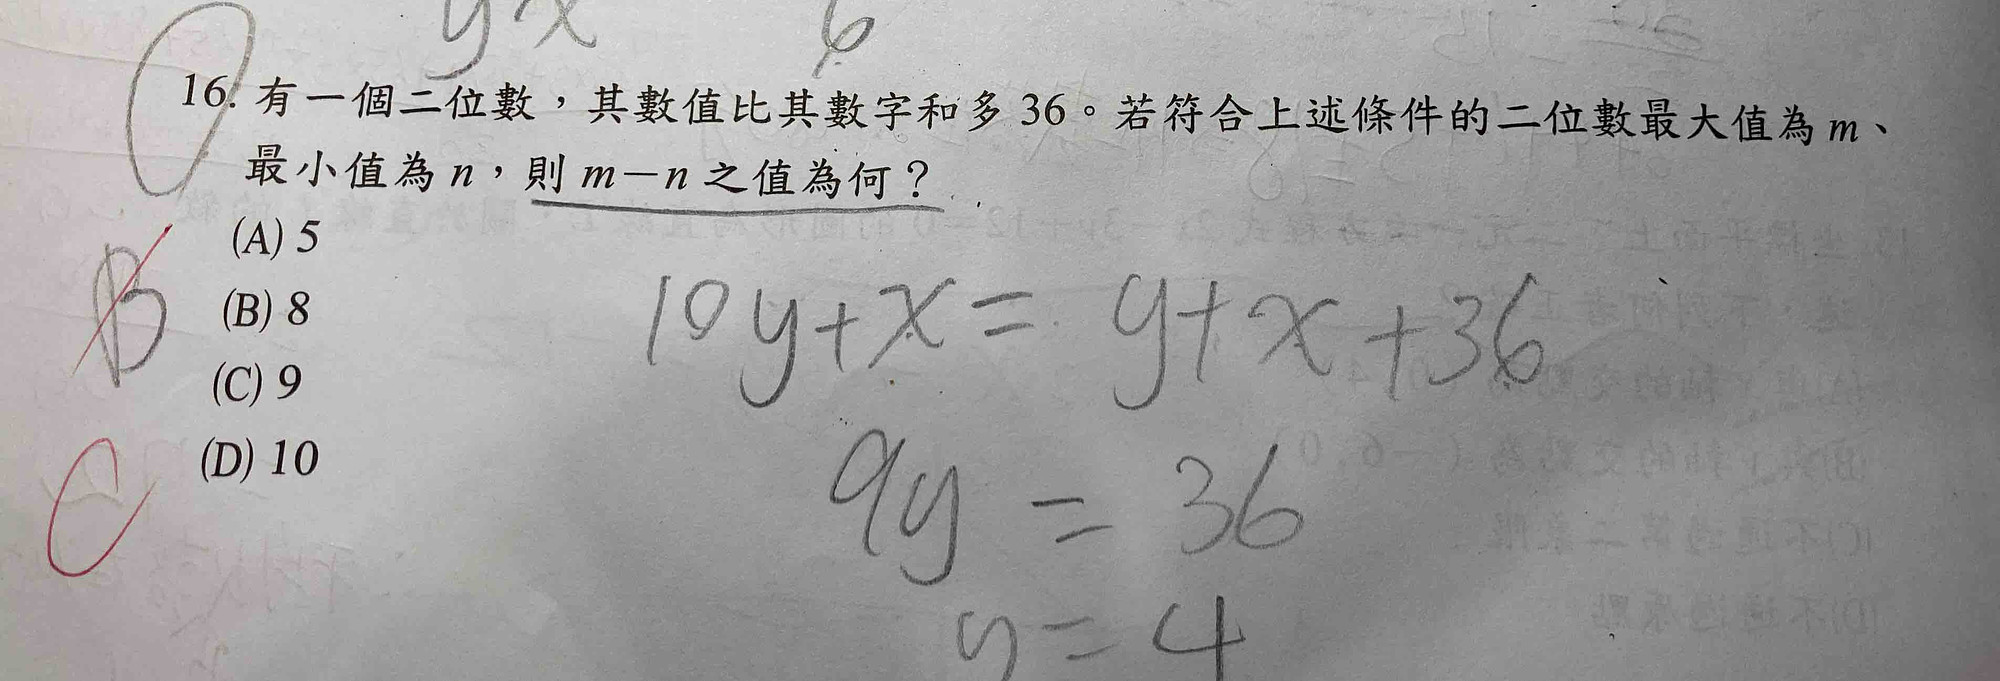 yx 6
16. 有一個二位數，其數值比其數字和多 36。若符合上述條件的二位數最大值為 m、
最小值為 n，則 m－n 之值為何？
(A) 5
(B) 8
(C) 9
(D) 10
B
C
10y+x= y+x+36
9y = 36
y = 4